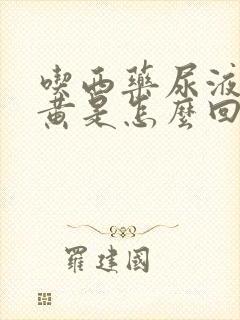 喫西藥尿液
黃是怎麼回
羅建國